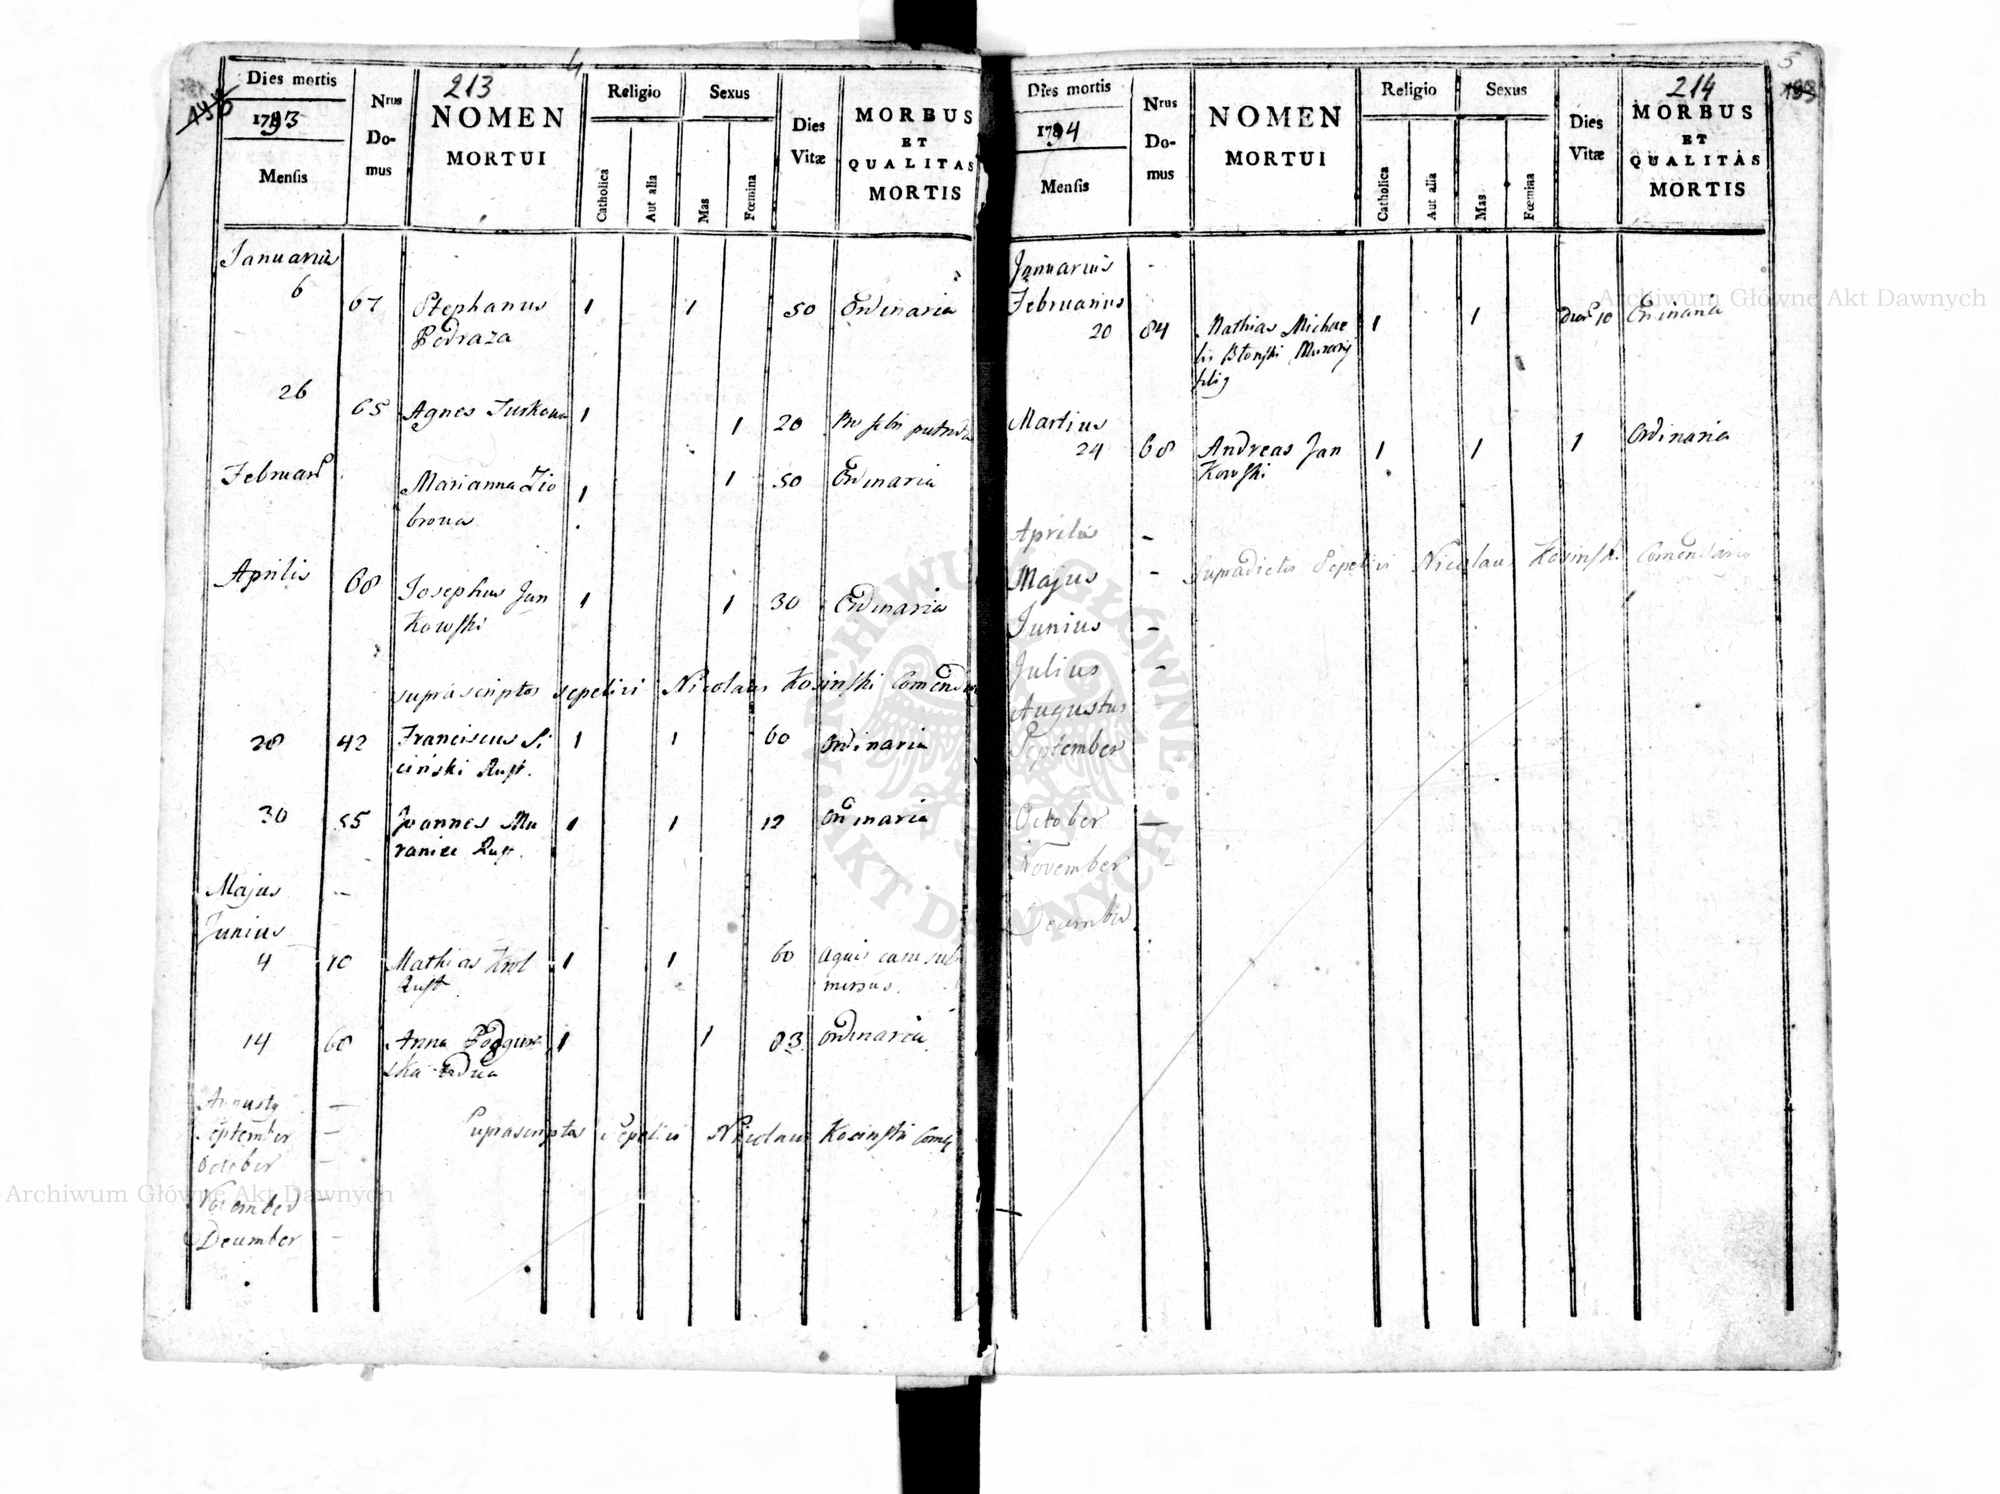 4
Dies mortis
1793
Mensis
Nrus
Do-
mus
213
NOMEN
MORTUI
Religio
Catholica
Aut alia
Sexus
Mas
Fœmina
Dies
Vitæ
MORBUS
ET
QUALITAS
MORTIS
Januarius
6 67 Stephanus 1 1 50 Ordinaria
Pedraza
26
65 Agnes Turkowa 1 1 20 putrida
Februari
Marianna Zio 1 1 50 Ordinaria
browa
Aprilis
68 Josephus Jan 1 1 30 Ordinaria
Kowski
suprascriptos sepelivi Nicolaus Kosinski
28 42 Franciscus Si 1 1 60 Ordinaria
cinski Rust.
30 55 Joannes Mu 1 1 12 Ordinaria
raniec Rust.
Majus —
Junius
4 10 Mathias Krol 1 1 60 aquis casu sub
Rust mersus.
14 68 Anna Podgur 1 1 83 Ordinaria
ska vidua
Augusty —
September —
Suprascriptos Sepelivi Nicolaus Kosinski
October —
November —
December —
5
Dies mortis
1794
Mensis
Nrus
Do-
mus
NOMEN
MORTUI
Religio
Catholica
Aut alia
Sexus
Mas
Fœmina
Dies
Vitæ
214
MORBUS
ET
QUALITAS
MORTIS
Januarius -
Februarius
20 84 Mathias Michae 1 1 10 Ordinaria
lis Błonski
Martius
24 68 Andreas Jan 1 1 1 Ordinaria
Kowski
Aprilis —
Majus - Supradictos Sepelivi Nicolaus Kosinski
Junius —
Julius -
Augustus
September
October —
November -
December
Archiwum Główne Akt Dawnych
Archiwum Główne Akt Dawnych
ARCHIWUM GŁÓWNE · AKT DAWNYCH ·